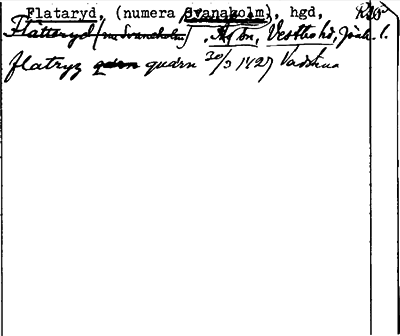 Flataryd, (numera Svanaholm), hgd, R20
Flattaryd (nu Svaneholm) . Ås sn, Vestbo hd, Jönk. l.
flatryz quærn 30/3 1427 Vadstena